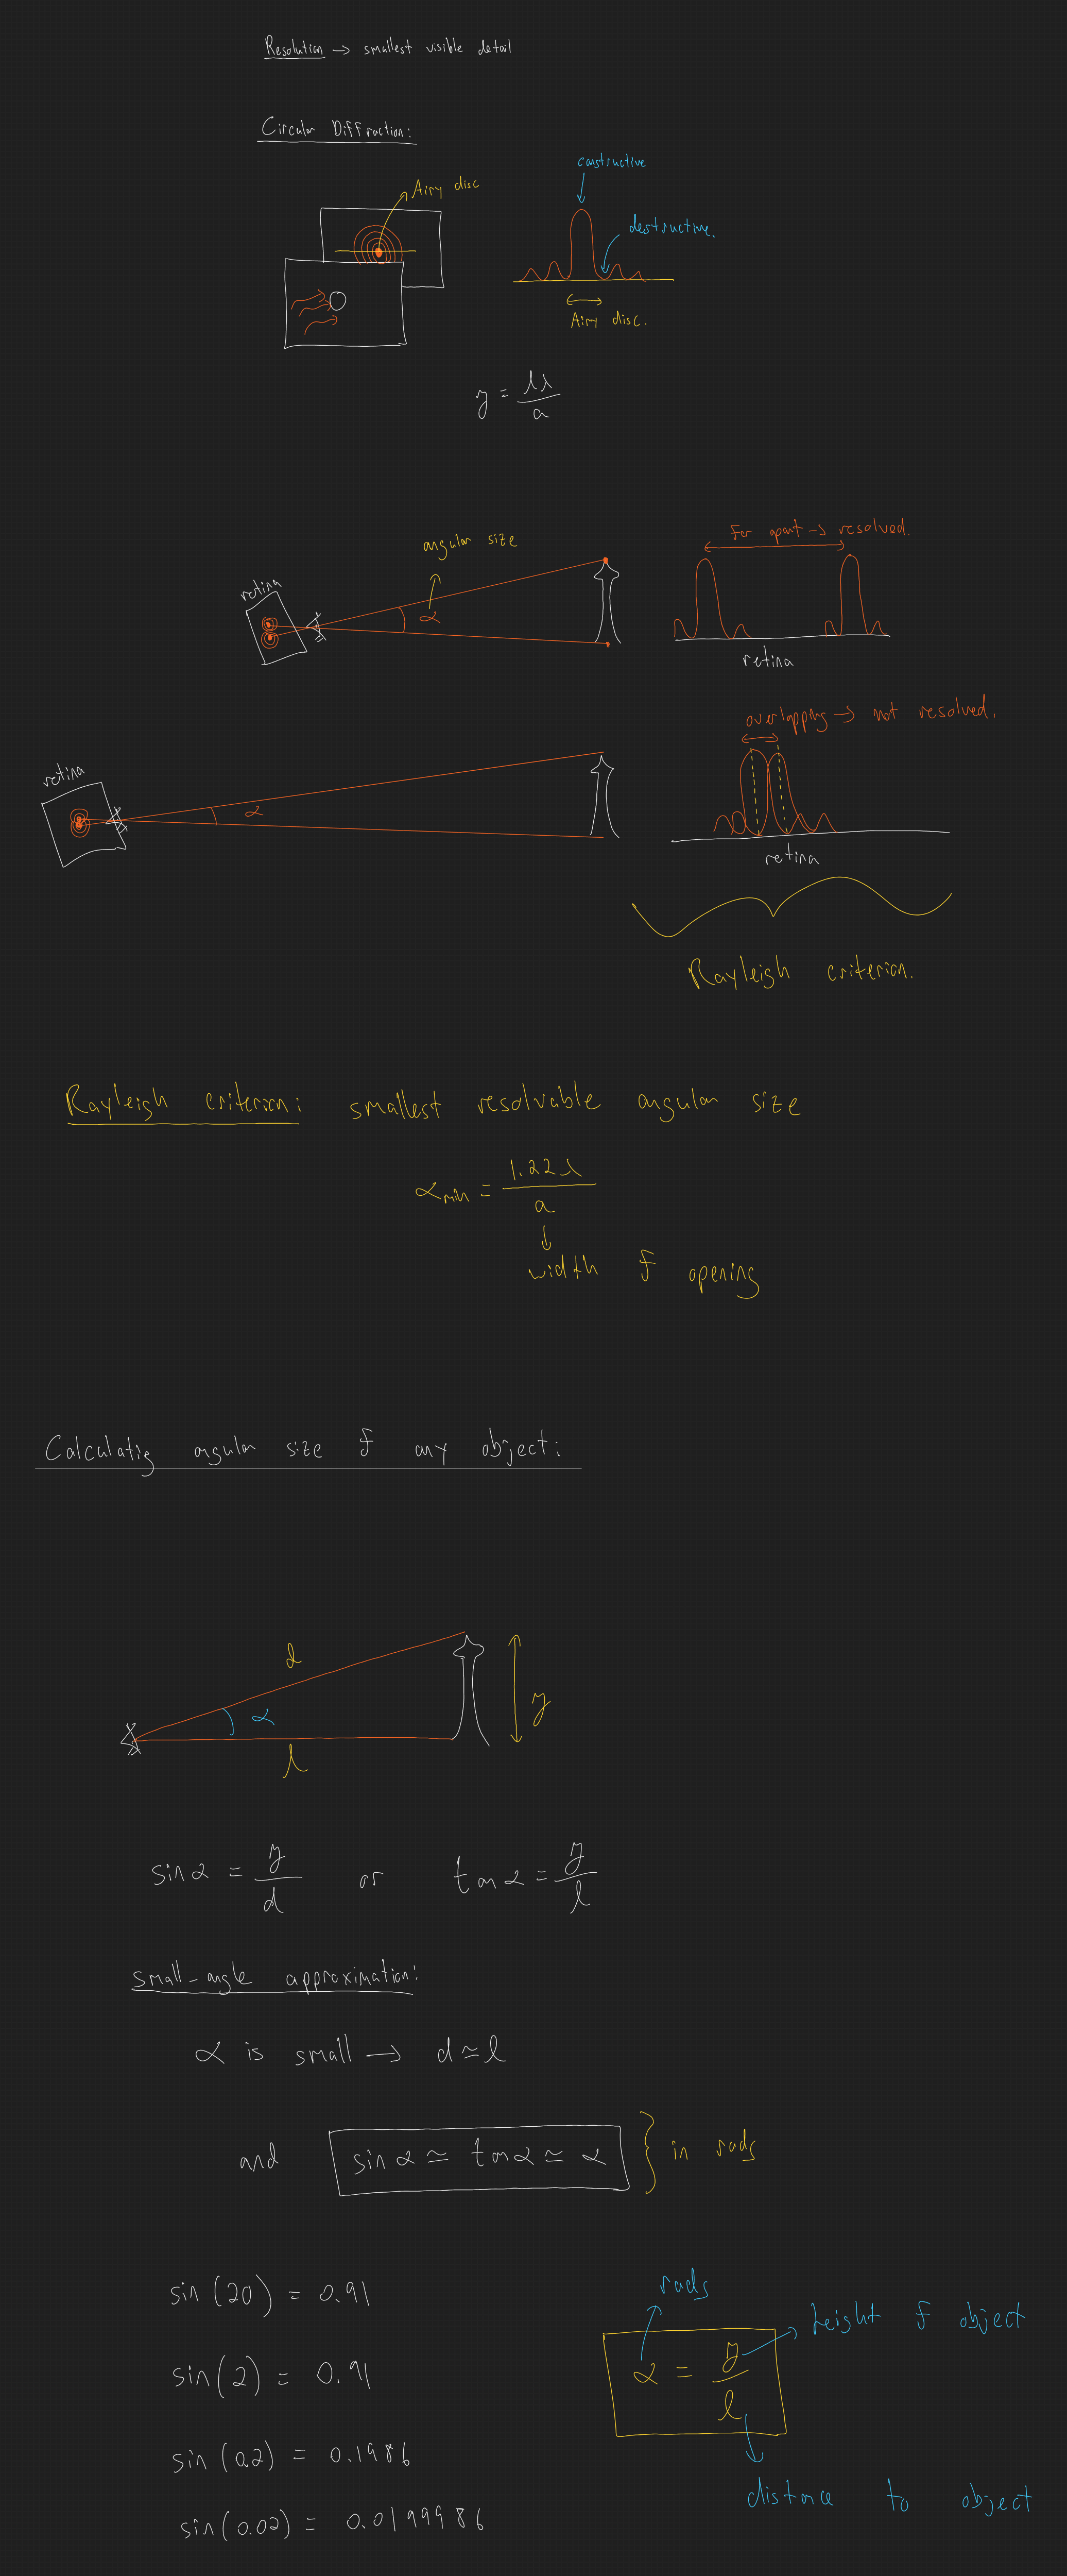 Resolution → smallest visible detail
Circular Diffraction:
Airy disc
constructive
destructive.
Airy disc.
y = lλ/a
angular size
retina
α
far apart → resolved.
retina
overlapping → not resolved.
retina
α
retina
Rayleigh criterion.
Rayleigh criterion: smallest resolvable angular size
α_min = 1.22λ/a
width of opening
Calculating angular size of any object:
d
α
y
l
sin α = y/d or tan α = y/l
small-angle approximation:
α is small → d ≃ l
and sin α ≃ tan α ≃ α } in rads
sin(20) = 0.91
sin(2) = 0.91
sin(0.2) = 0.1986
sin(0.02) = 0.0199986
rads
height of object
α = y/l
distance to object